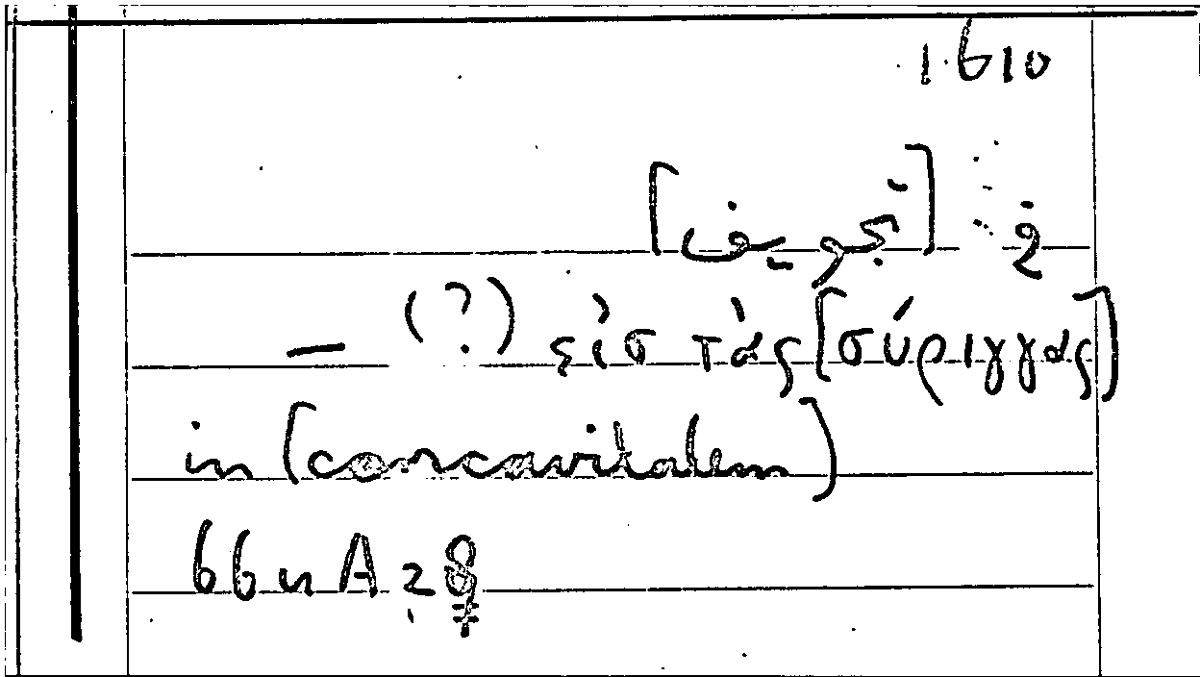 1.610
في [تجويف]
— (?) εἰσ τὰς [σύριγγας]
in [concavitatem]
66 u A 28